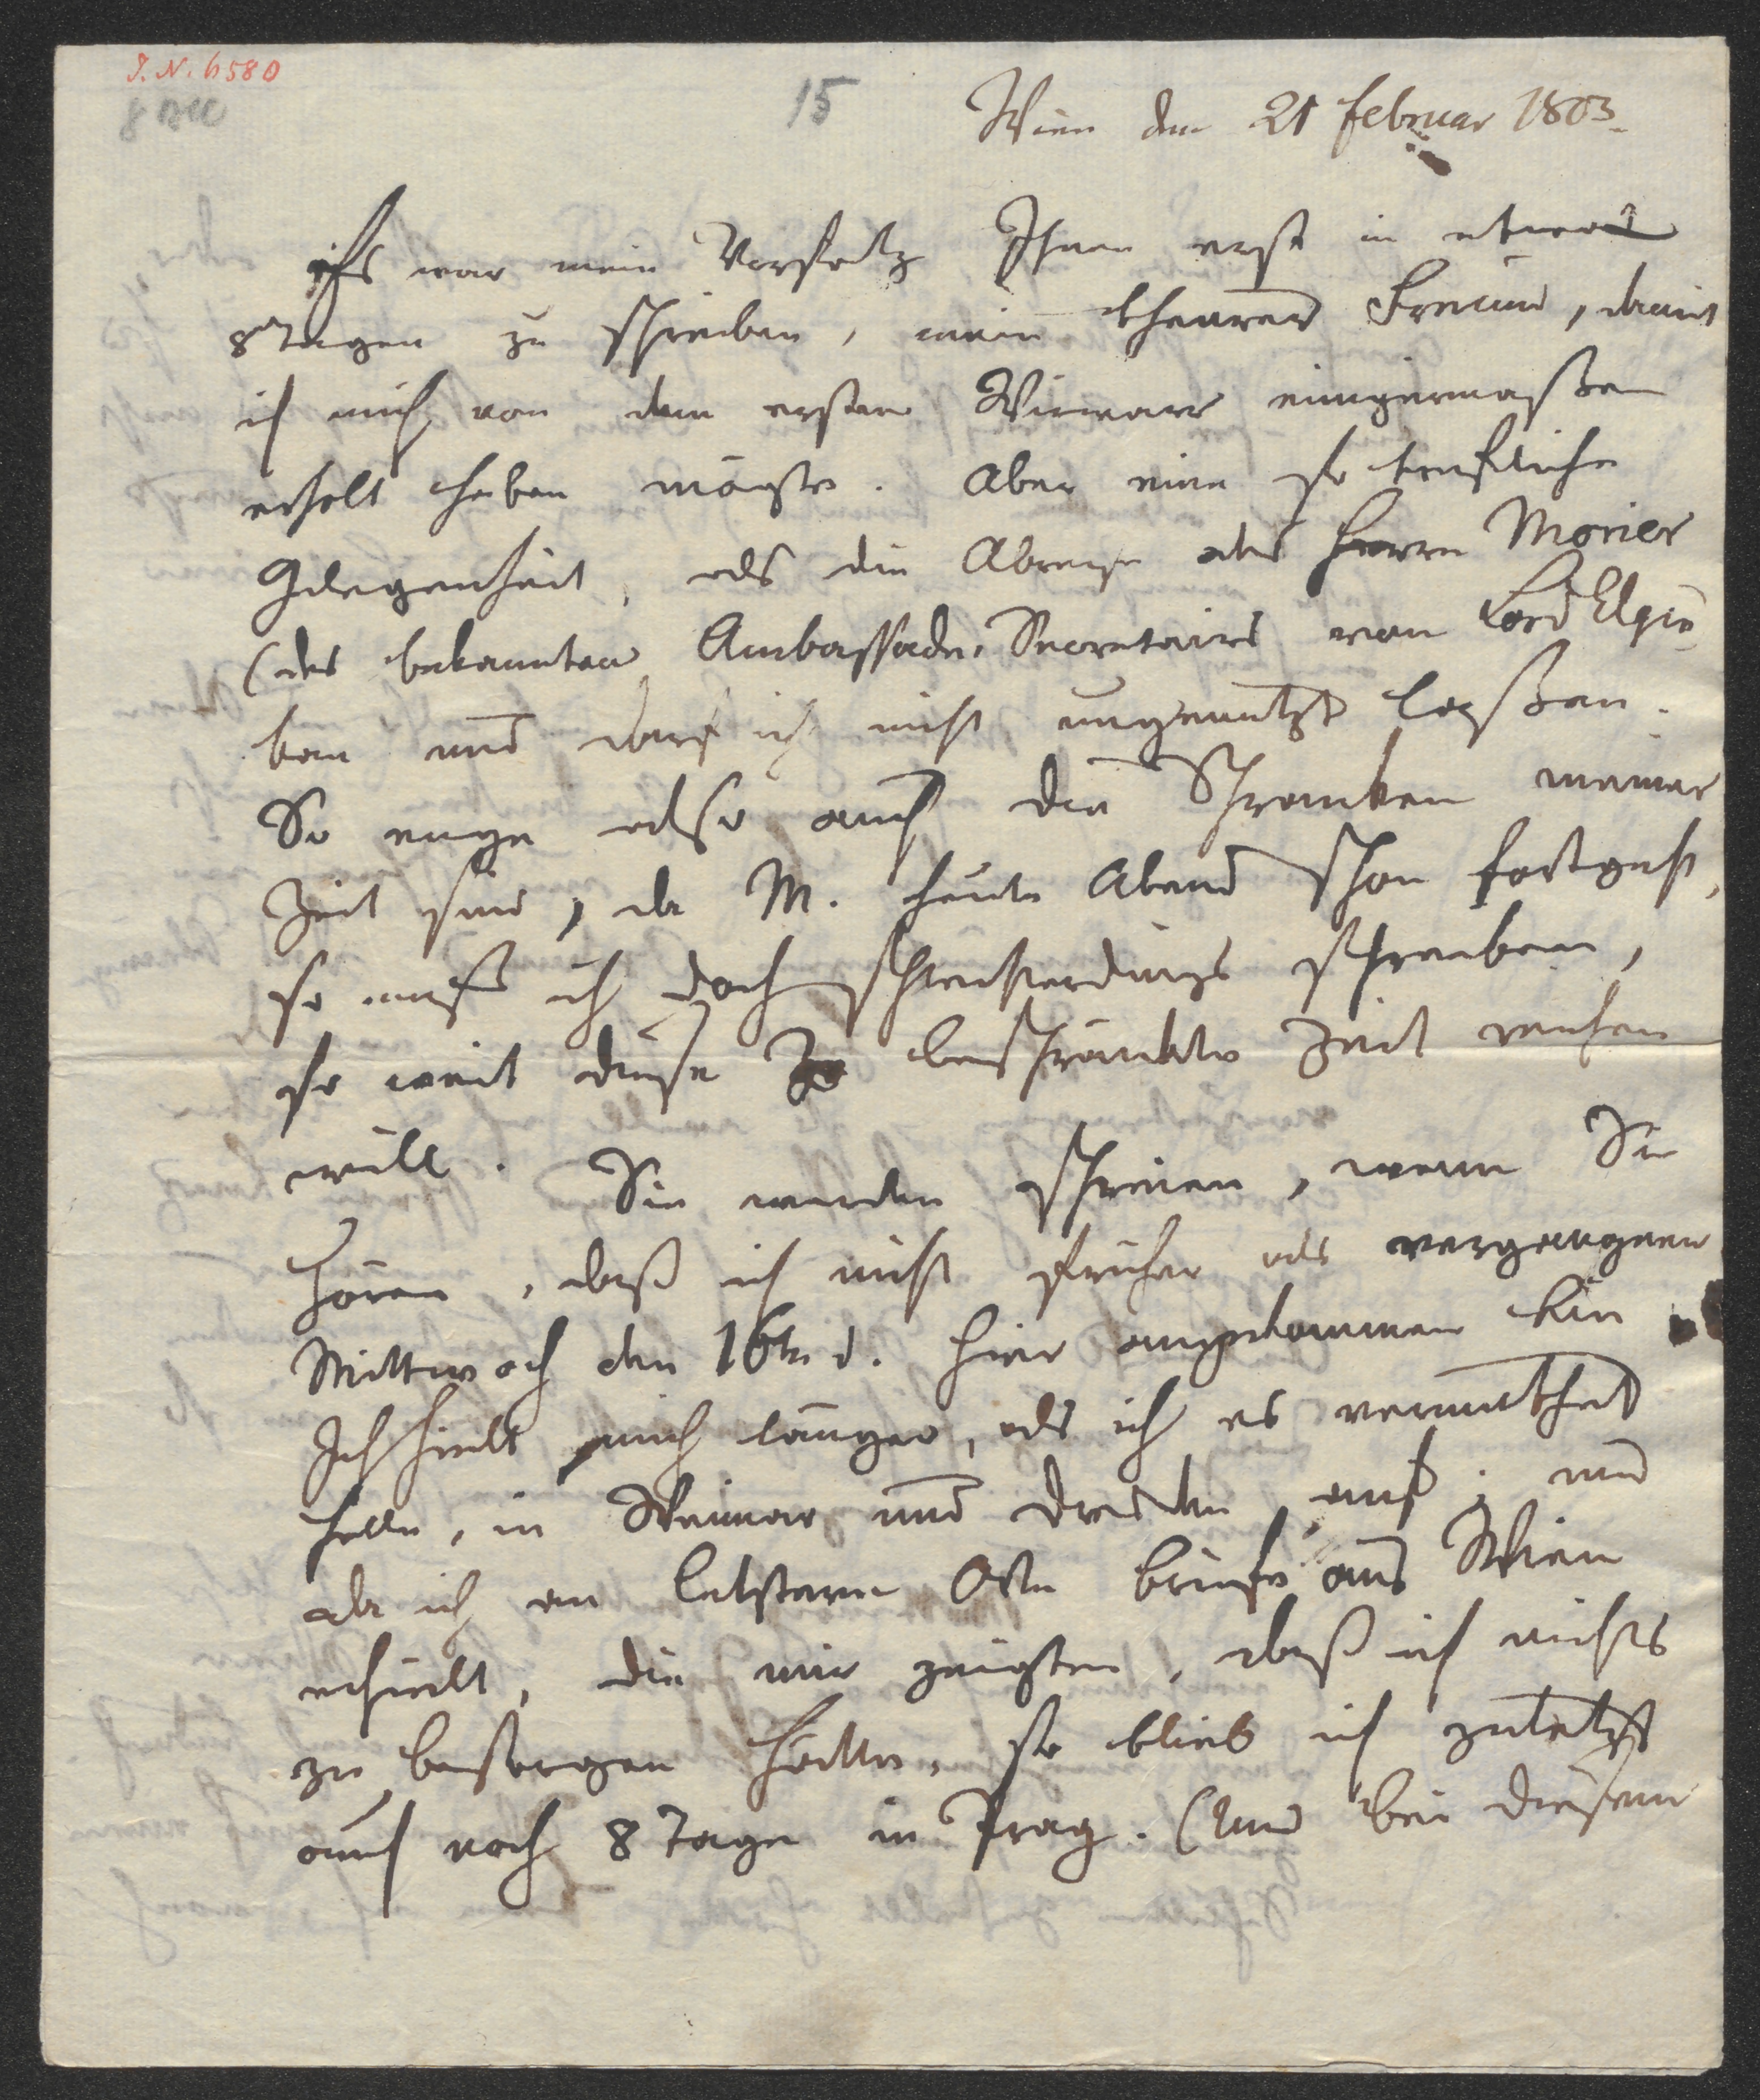 I. N. 6580
15
Wien den 21 Februar 1803.
Es war mein Vorsatz Ihnen erst in etwa
8 Tagen zu schreiben, mein theurer Freund, damit
ich mich von dem ersten Wirwarr einigermaßen
erholt haben mögte. Aber eine so trefliche
Gelegenheit, als die Abreise des Herrn Morier
(des bekannten Ambassade-Secretairs von Lord Elgin
kan und darf ich nicht ungenutzt laßen.
So enge also auch die Schranken meiner
Zeit sind, da M. heute Abend schon fortgeht,
so muß ich doch schlechterdings schreiben,
so weit diese beschränkte Zeit reichen
will. Sie werden schreien, wenn Sie
hören, daß ich nicht früher als vergangnen
Mittwoch den 16ten d. hier angekommen bin
Ich hielt mich länger, als ich es vermuthet
hatte, in Weimar und Dresden auf; und
da ich an letzterm Orte Briefe aus Wien
erhielt, die mir zeigten, daß ich nichts
zu besorgen hätte, so blieb ich zuletzt
auch noch 8 Tage in Prag. (Und bei diesem